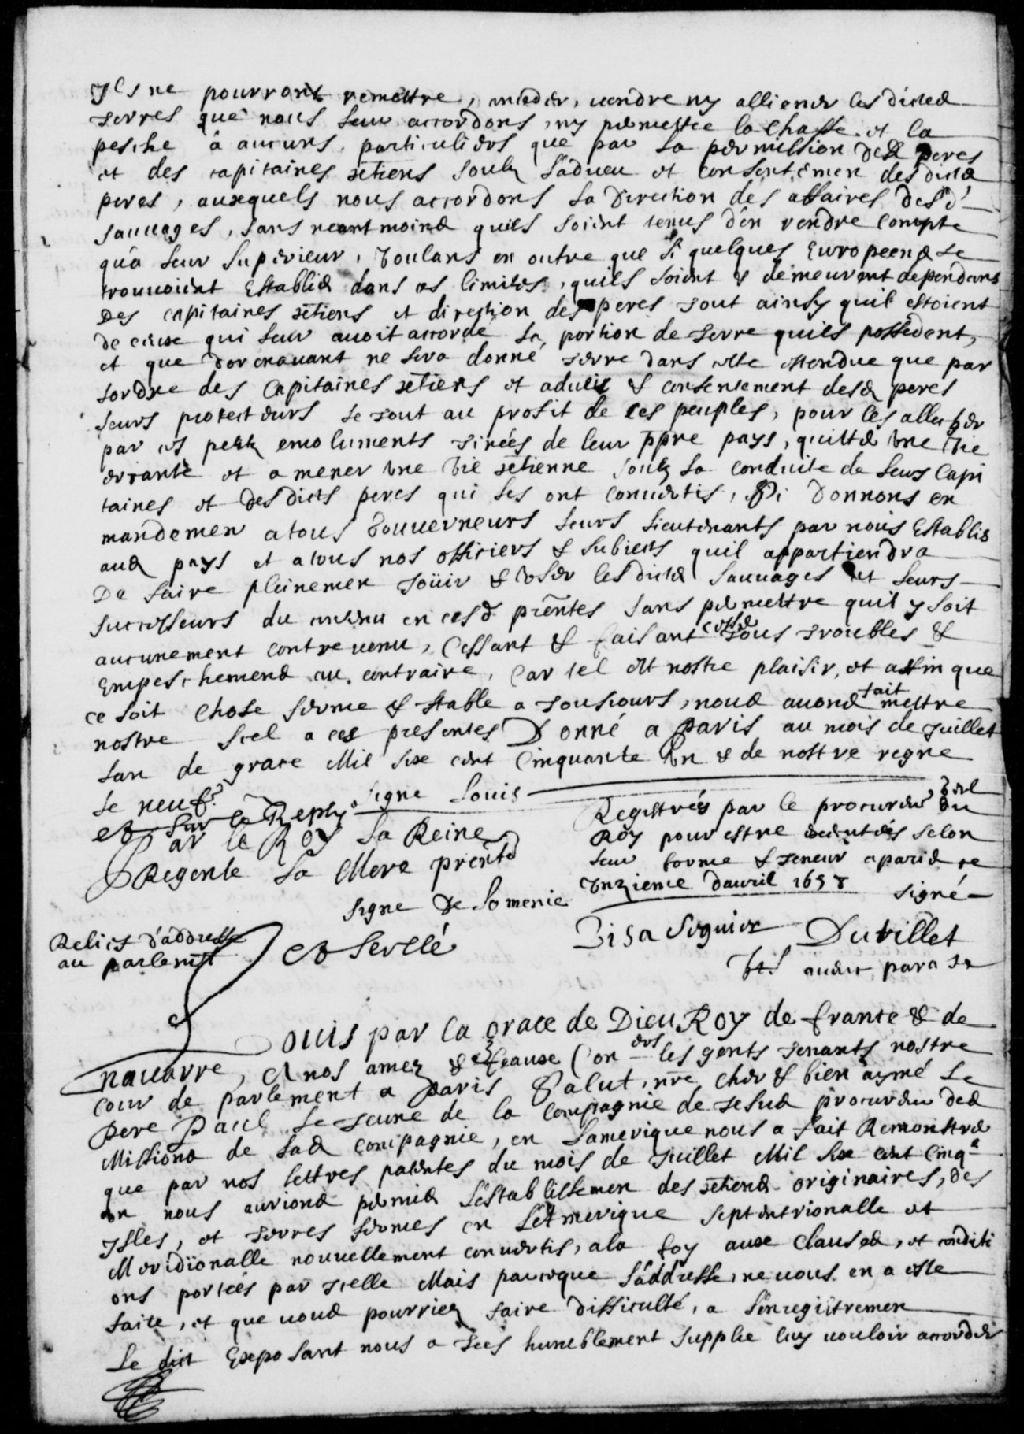 Ils ne pourront remettre, ceder, vendre ny alliener lesdicted
terres que nous leur accordons, ny permettre la chasse et la
pesche à aucuns particuliers que par la permission desd peres
et des capitaines xtiens soubz l'adveu et consentemen desdicts
peres, auxquels nous accordons la Direction des affaires desd
sauuages, sans neantmoins quils soient tenus d'en rendre compte
qu'a leur superieur, voulans en outre que si quelques Europeens se
trouuoient Establis dans ces limites, quils soient & demeurent dependans
des capitaines xtiens et direction des peres tout ainsy quil estoient
de ceux qui leur auoit accordé la portion de terre quils possedent,
et que dorenauant ne sera donné terre dans cette estendue que par
lordre des Capitaines xtiens et aduis & consentement desd peres
leurs protecteurs le tout au profit de ces peuples, pour les allecher
par ces petits emoluments tirées de leur ppre pays, quitter vne vie
errante et a mener vne vie xtienne soubz la conduite de leurs Capi
taines et desdicts peres qui les ont conuertis, Si Donnons en
mandemen a tous Gouuerneurs leurs lieutenants par nous Establis
aud pays et a tous nos officiers & subiects quil appartiendra
De faire pleinemen joüir & vser lesdicts sauuages et leurs
successeurs du contenu en cesd pntes sans permettre quil y soit
aucunement contreuenu, Cessant & faisant cesser tous troubles &
Empeschemens au contraire, Car tel est nostre plaisir, et affin que
ce soit chose ferme & stable a tousiours, nous auons fait mettre
nostre scel a ces presentes Donné a Paris au mois de Juillet
lan de grace Mil six cent Cinquante Vn & de nostre regne
le neufe signe Louis
et sur le Reply
Par le Roy la Reine
Regente sa Mere presente
signe De Lomenie
Registrés par le procureur gnal du
Roy pour estre executés selon
leur forme & teneur a paris ce
Vnzieme d'auril 1658
signé
Relief d'addresse
au parlemt
et scellé
Visa Seguier Dutillet
Louis par la grace de Dieu Roy de france & de
nauarre, A nos amez & feaux Coners les gents tenants nostre
cour de parlement a Paris Salut, nre cher & bien aymé Le
Pere Paul le Jeune de la Compagnie de Jesus procureur des
Missions de lad compagnie, en Lamerique nous a fait Remonstrer
que par nos lettres patentes du mois de Juillet Mil six cent Cinqte
vn nous aurions permis l'establissemen des xtiens originaires, des
Isles, et terres fermes en L'Amerique septentrionalle et
Meridionalle nouuellement conuertis, a la foy aux Clauses, et conditi
ons portées par Icelle Mais parceque l'addresse, ne vous en a esté
faite, et que vous pourriez faire difficulté, a l'enregistremen
Le dict Exposant nous a tres humblement supplie luy vouloir accorder